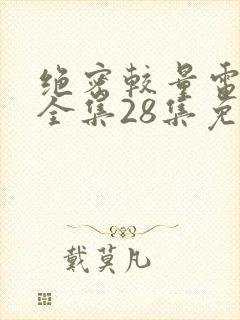 绝密较量雷
全集28集免
戴莫凡